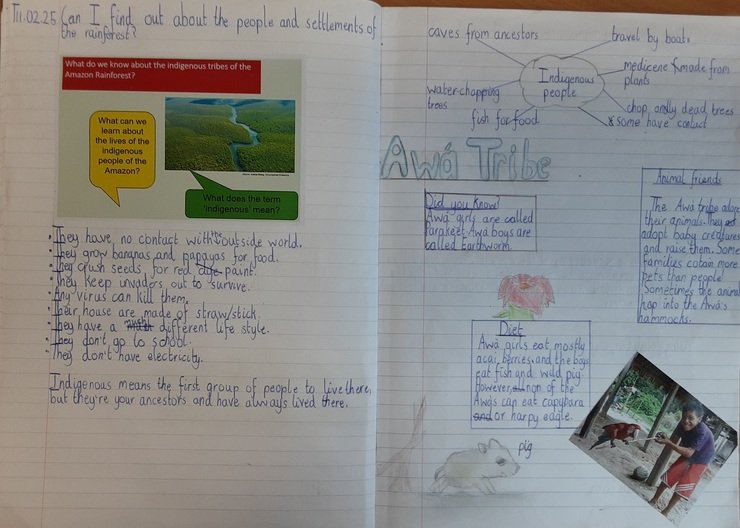 T11.02.25 Can I find out about the people and settlements of
the rainforest?
What do we know about the indigenous tribes of the
Amazon Rainforest?
What can we
learn about
the lives of the
indigenous
people of the
Amazon?
What does the term
'indigenous' mean?
• They have no contact with the outside world.
• They grow bananas and papayas for food.
• They crush seeds for red paint.
• They keep invaders out to survive.
• Any virus can kill them.
• Their house are made of straw/stick.
• They have a different life style.
• They don't go to school.
• They don't have electricity.
Indigenous means the first group of people to live there,
but they're your ancestors and have always lived there.
caves from ancestors
travel by boats
Indigenous
people
medicene made from
plants
water-chopping
trees
chop only dead trees
some have contact
fish for food
Awá Tribe
Did you know!
Awá girls are called
Parakeet. Awá boys are
called Earthworm.
Animal friends
The Awá tribe adore
their animals. They
adopt baby creatures
and raise them. Some
families cotain more
pets than people
Sometimes the animal
hop into the Awá's
hammocks.
Diet
Awá girls eat mostly
acai, berries. and the boys
eat fish and wild pig
However, non of the
Awás can eat capybara
or harpy eagle.
pig